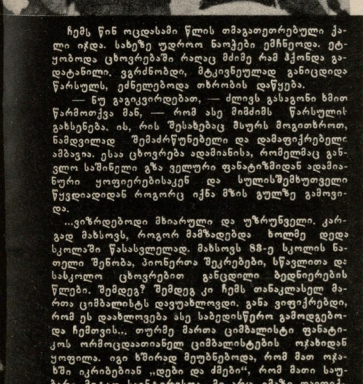 ჩემს წინ ოცდასამი წლის თმაგათეთრებული ქა-
ლი იჯდა. სახეზე უდროო ნაოჭები ემჩნეოდა. ეტ-
ყობოდა ცხოვრებაში რაღაც მძიმე რამ ჰქონდა გა-
დატანილი. ვგრძნობდი, მტკივნეულად განიცდიდა
წარსულს, ეძნელებოდა თხრობის დაწყება.
— ნუ გაგიკვირდებათ, — ძლივს გასაგონი ხმით
წარმოთქვა მან, — რომ ასე მიმძიმს წარსულის
გახსენება. ის, რის შესახებაც მსურს მოგითხროთ,
ნამდვილად შემაძრწუნებელი და დამაფიქრებელი
ამბავია. ესაა ცხოვრება ადამიანისა, რომელმაც გან-
ვლო საშინელი გზა ველური ფანატიზმიდან ადამია-
ნური ყოფიერებისაკენ და სულისშემხუთველი
წყვდიადიდან როგორც იქნა მზის გულზე გამოვი-
და.
...ვიზრდებოდი მხიარული და უზრუნველი. კარ-
გად მახსოვს, როგორ მამზადებდა ხოლმე დედა
სკოლაში წასასვლელად. მახსოვს 88-ე სკოლის ნა-
თელი შენობა, პიონერთა შეკრებები, სწავლითა და
სასკოლო ცხოვრებით განცდილი ბედნიერების
წლები. შემდეგ? შემდეგ კი ჩემს თანაკლასელ მა-
რთა ციმბალისტს დავუახლოვდი. განა ვიფიქრებდი,
რომ ეს დაახლოვება ასე საბედისწერო გამოდგებო-
და ჩემთვის... თურმე მართა ციმბალისტი ფანატი-
კოს ორმოცდაათიანელ ციმბალისტების ოჯახიდან
ყოფილა. იგი ხშირად მეუბნებოდა, რომ მათ ოჯა-
ხში იკრიბებიან „დები და ძმები“, რომ მათი საუ-